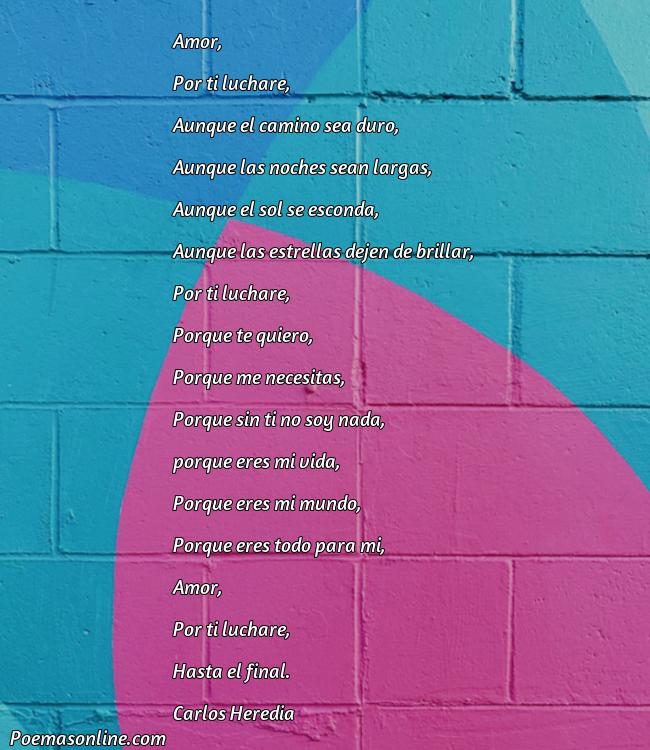 Amor,
Por ti luchare,
Aunque el camino sea duro,
Aunque las noches sean largas,
Aunque el sol se esconda,
Aunque las estrellas dejen de brillar,
Por ti luchare,
Porque te quiero,
Porque me necesitas,
Porque sin ti no soy nada,
porque eres mi vida,
Porque eres mi mundo,
Porque eres todo para mi,
Amor,
Por ti luchare,
Hasta el final.
Carlos Heredia
Poemasonline.com